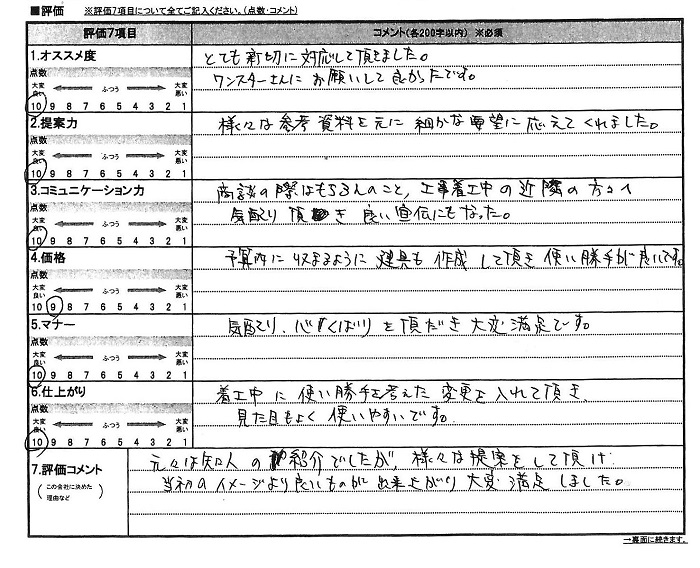 ■評価 ※評価7項目について全てご記入ください。(点数・コメント)
評価7項目 コメント(各200字以内) ※必須
1.オススメ度 とても親切に対応して頂きました。
点数 ワンスターさんに お願いして良かったです。
大変良い ふつう 大変悪い
10 9 8 7 6 5 4 3 2 1
2.提案力 様々な参考資料を元に 細かな要望に応えてくれました。
点数
大変良い ふつう 大変悪い
10 9 8 7 6 5 4 3 2 1
3.コミュニケーション力 商談の際はもちろんのこと、工事着工中の近隣の方々へ
点数 気配り頂き 良い宣伝にもなった。
大変良い ふつう 大変悪い
10 9 8 7 6 5 4 3 2 1
4.価格 予算内に収まるように 建具も作成して頂き 使い勝手が良いです。
点数
大変良い ふつう 大変悪い
10 9 8 7 6 5 4 3 2 1
5.マナー 気配り、心くばりを頂だき 大変満足です。
点数
大変良い ふつう 大変悪い
10 9 8 7 6 5 4 3 2 1
6.仕上がり 着工中に使い勝手を考えた 変更を入れて頂き、
点数 見た目もよく 使いやすいです。
大変良い ふつう 大変悪い
10 9 8 7 6 5 4 3 2 1
7.評価コメント 元々は知人の紹介でしたが、様々な提案をして頂け
(この会社に決めた理由など) 当初のイメージより良いものが出来上がり 大変満足しました。
→裏面に続きます。